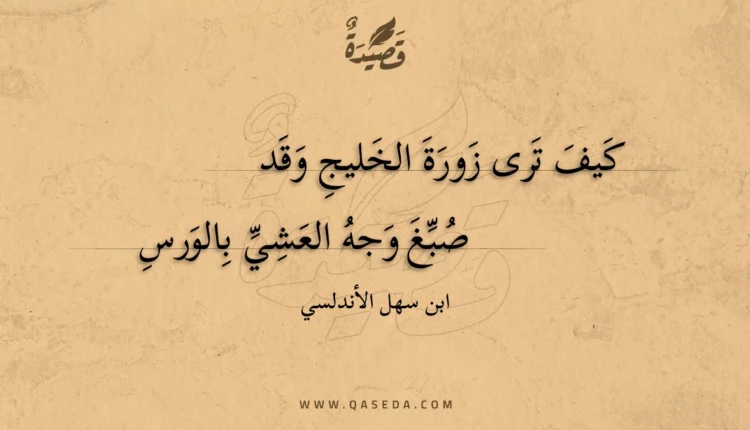 قَصِيْدَةٌ
كَيفَ تَرى زَورَةَ الخَليجِ وَقَد
صُبِّغَ وَجهُ العَشِيِّ بِالوَرسِ
ابن سهل الأندلسي
WWW.QASEDA.COM